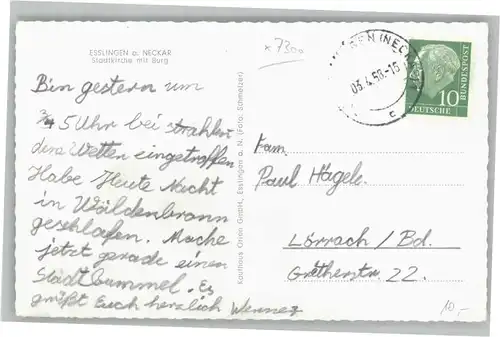 ESSLINGEN a. NECKAR
Stadtkirche mit Burg
Bin gestern um
3/4 5 Uhr bei strahlen
dem Wetter eingetroffen
Habe Heute Nacht
in Wäldenbronn
geschlafen. Mache
jetzt gerade einen
Stadtbummel. Es
grüßt Euch herzlich Werner
Kaufhaus Orion GmbH, Esslingen a. N. (Foto: Schmelzer)
x 730a
(NECKAR)
03.4.58.-15
c
10
DEUTSCHE
BUNDESPOST
Fam.
Paul Hägele
Lörrach / Bd.
Gretherstr. 22.
10,-